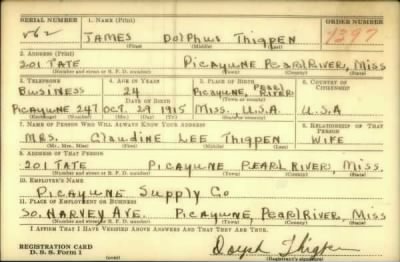 SERIAL NUMBER 1. NAME (Print) ORDER NUMBER
V62 JAMES Dolphus Thigpen 1397
(First) (Middle) (Last)
2. ADDRESS (Print)
201 TATE Picayune Pearl River, Miss
(Number and street or R. F. D. number) (Town) (County) (State)
3. TELEPHONE 4. AGE IN YEARS 5. PLACE OF BIRTH 6. COUNTRY OF CITIZENSHIP
Business 24 Picayune, Pearl River
DATE OF BIRTH (Town or county)
Picayune 247 Oct. 29 1915 Miss. U.S.A U.S.A
(Exchange) (Number) (Mo.) (Day) (Yr.) (State or country)
7. NAME OF PERSON WHO WILL ALWAYS KNOW YOUR ADDRESS 8. RELATIONSHIP OF THAT PERSON
Mrs. Claudine Lee Thigpen WIFE
(Mr., Mrs., Miss) (First) (Middle) (Last)
9. ADDRESS OF THAT PERSON
201 TATE Picayune Pearl River, Miss
(Number and street or R. F. D. number) (Town) (County) (State)
10. EMPLOYER'S NAME
Picayune Supply Co
11. PLACE OF EMPLOYMENT OR BUSINESS
So. HARVEY AVE. Picayune, Pearl River, Miss
(Number and street or R. F. D. number) (Town) (County) (State)
I AFFIRM THAT I HAVE VERIFIED ABOVE ANSWERS AND THAT THEY ARE TRUE.
REGISTRATION CARD
D. S. S. Form 1 (Registrant's signature)